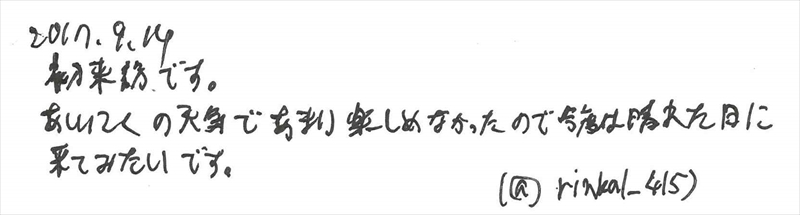 2017.9.14
初来訪です。
あいにくの天気であまり楽しめなかったので今度は晴れた日に
来てみたいです。
(@rinkal_415)